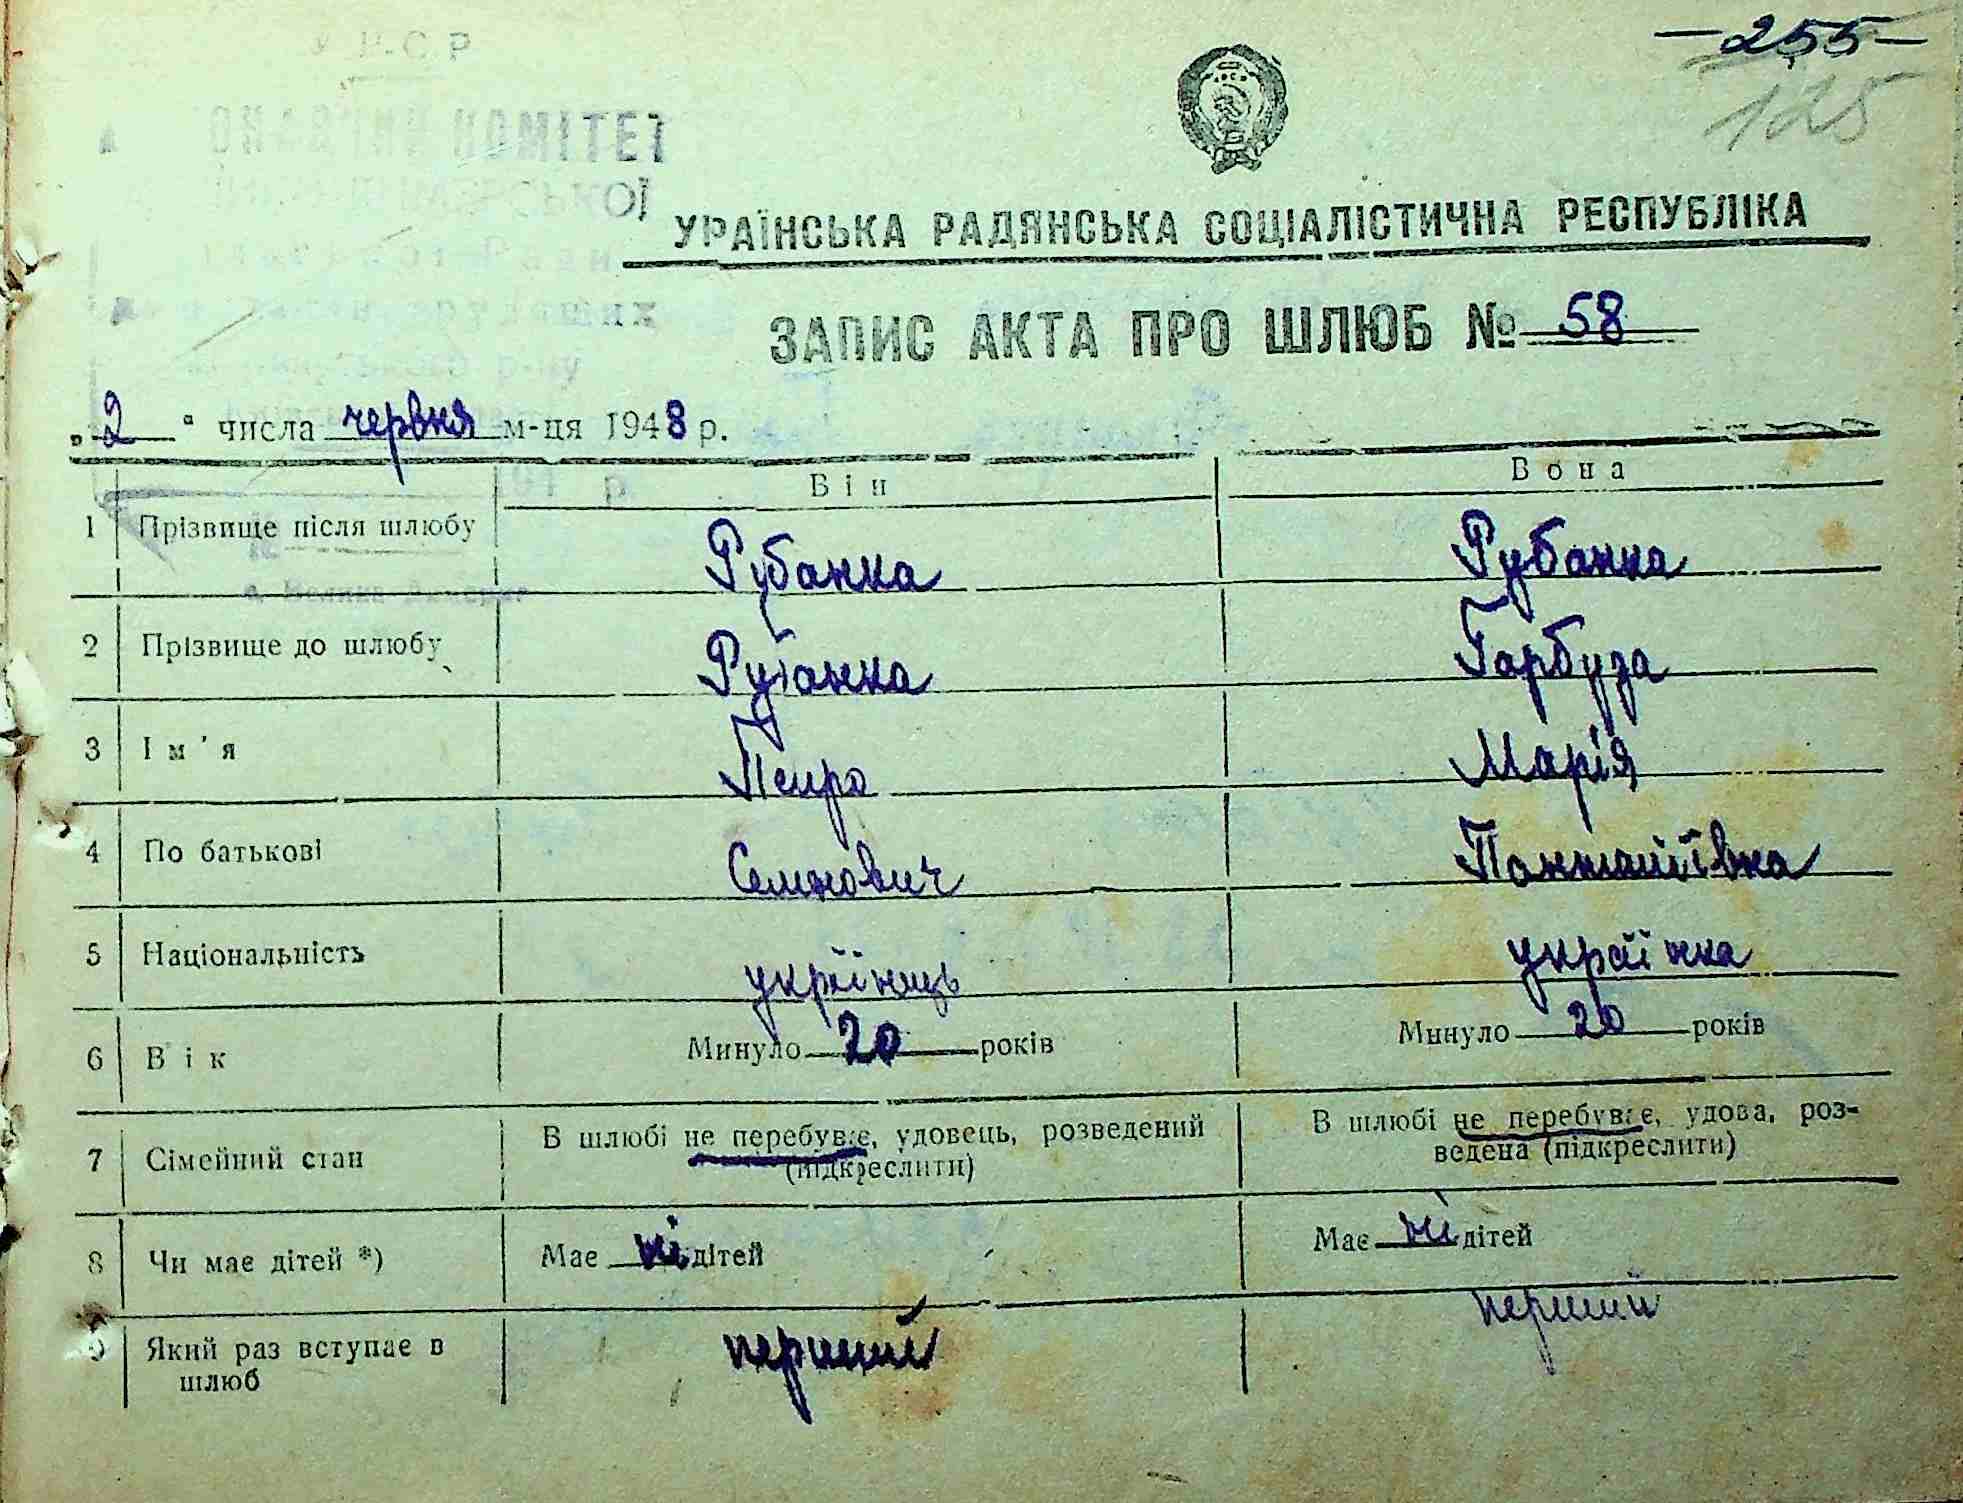 У.Р.С.Р
КОМІТЕТ
-255-
125
УКРАЇНСЬКА РАДЯНСЬКА СОЦІАЛІСТИЧНА РЕСПУБЛІКА
ЗАПИС АКТА ПРО ШЛЮБ № 58
„2“ числа червня м-ця 1948 р.
Він Вона
1 Прізвище після шлюбу Рубанка Рубанка
2 Прізвище до шлюбу Рубанка Гарбуза
3 Ім'я Петро Марія
4 По батькові Семнович
5 Національність україїнець украї нка
6 Вік Минуло 20 років Минуло 20 років
7 Сімейний стан В шлюбі не перебуває, удовець, розведений (підкреслити) В шлюбі не перебуває, удова, роз-
ведена (підкреслити)
8 Чи має дітей *) Має ні дітей Має ні дітей
9 Який раз вступає в перший перший
шлюб